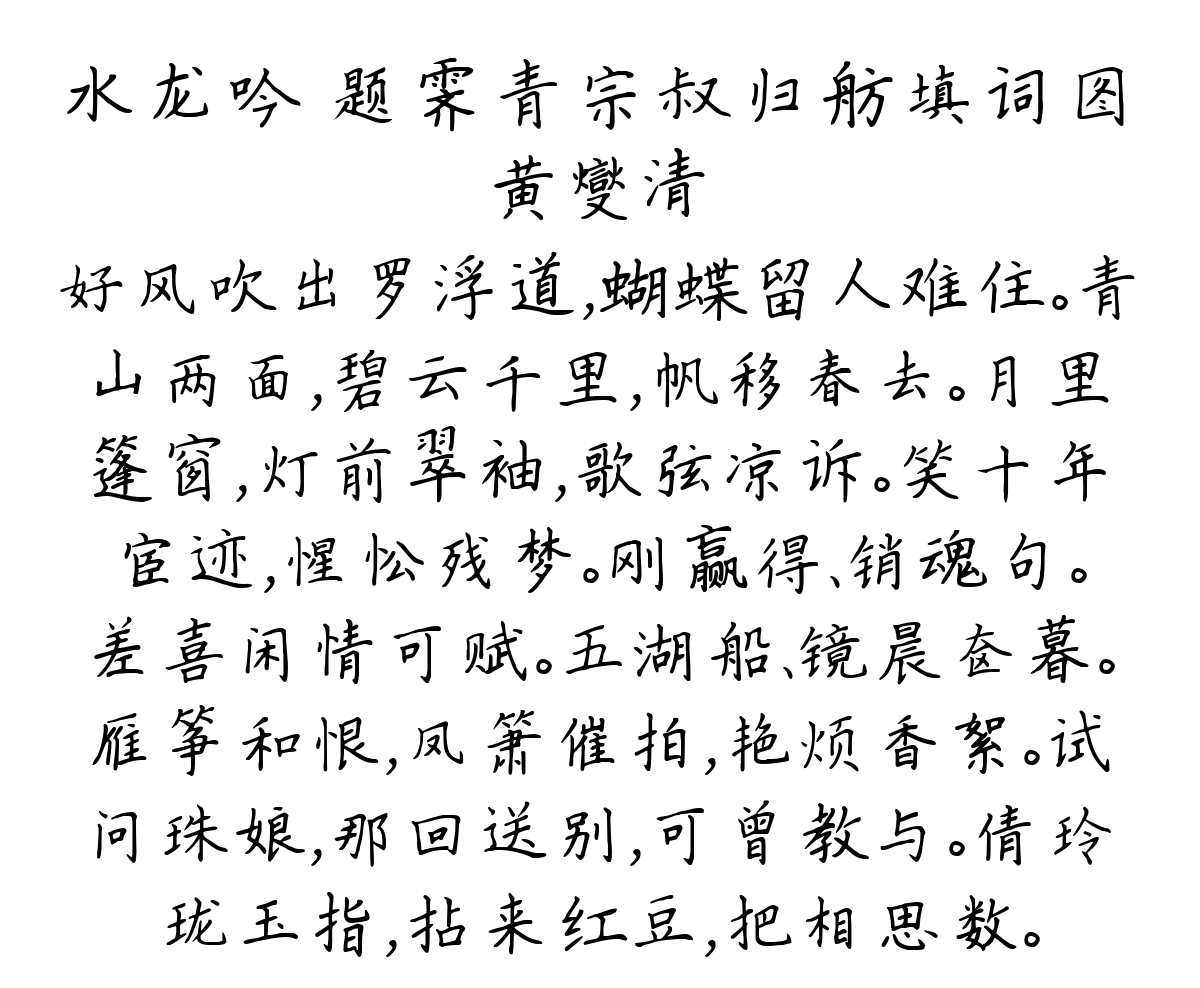 水龙吟 题霁青宗叔归舫填词图
黄燮清
好风吹出罗浮道,蝴蝶留人难住。青
山两面,碧云千里,帆移春去。月里
篷窗,灯前翠袖,歌弦凉诉。笑十年
宦迹,惺忪残梦。刚赢得、销魂句。
差喜闲情可赋。五湖船、镜晨奁暮。
雁筝和恨,凤箫催拍,艳烦香絮。试
问珠娘,那回送别,可曾教与。倩玲
珑玉指,拈来红豆,把相思数。